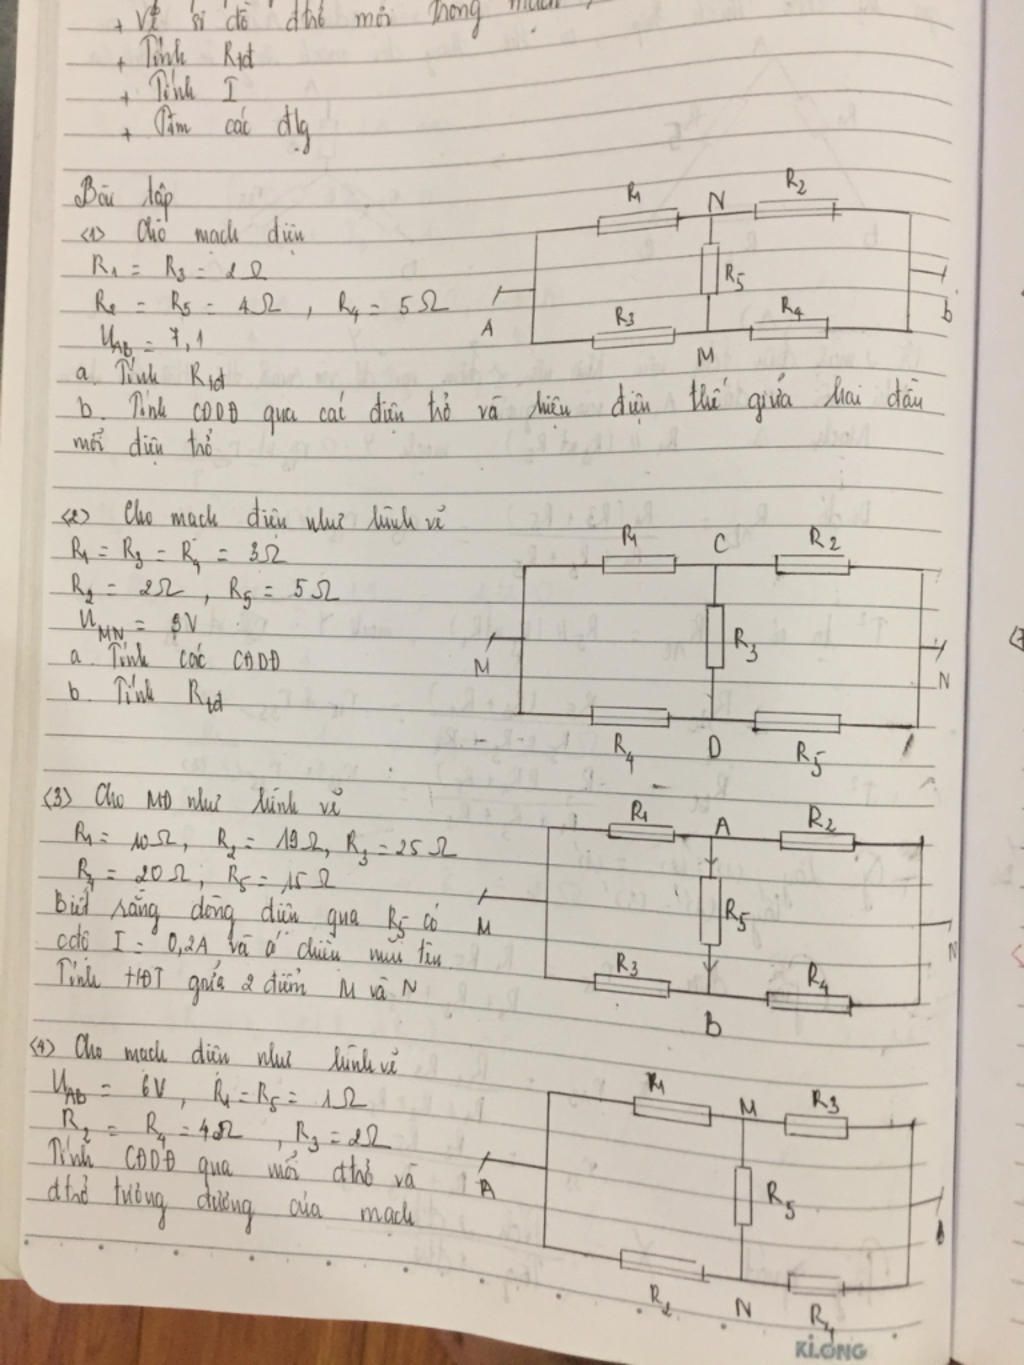 + Vẽ sơ đồ đtrở mới trong mạch
+ Tính Rtđ
+ Tính I
+ Tìm các đlg
Bài tập
<1> Cho mạch điện
R1 = R3 = 2Ω
R2 = R5 = 4Ω , R4 = 5Ω
UAB = 7,1
a. Tính Rtđ
b. Tính CĐDĐ qua các điện trở và hiệu điện thế giữa hai đầu
mỗi điện trở
R1 N R2
R5
A b
R3 M R4
<2> Cho mạch điện như hình vẽ
R1 = R3 = R4 = 3Ω
R2 = 2Ω , R5 = 5Ω
UMN = 3V
a. Tính các CĐDĐ
b. Tính Rtđ
R1 C R2
R3
M N
R4 D R5
<3> Cho MĐ như hình vẽ
R1 = 10Ω, R2 = 19Ω, R3 = 25Ω
R4 = 20Ω, R5 = 15Ω
biết rằng dòng điện qua R5 có
cđộ I = 0,2A và có chiều mũi tên
Tính HĐT giữa 2 điểm M và N
R1 A R2
R5
M N
R3 B R4
<4> Cho mạch điện như hình vẽ
UAB = 6V, R1 = R5 = 1Ω
R2 = R4 = 4Ω , R3 = 2Ω
Tính CĐDĐ qua mỗi đtrở và
đtrở tương đương của mạch
R1 M R3
R5
A b
R2 N R4
KLONG